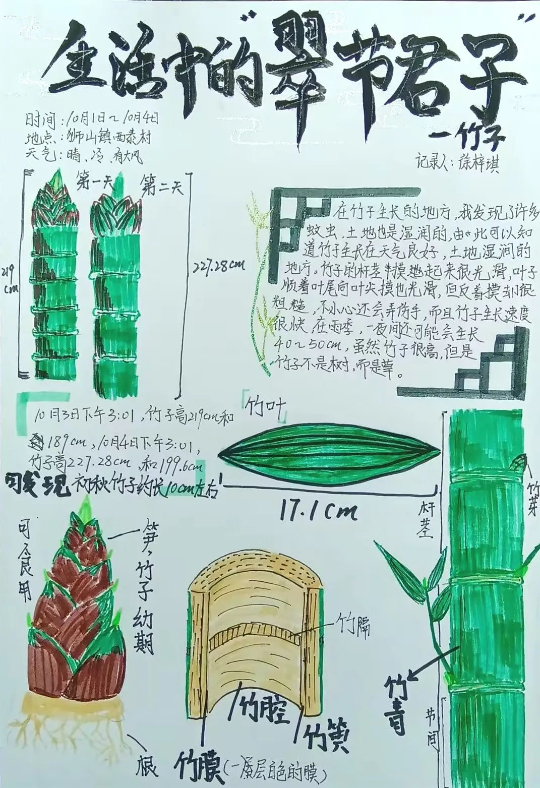 生活中的"翠节君子"
—竹子
时间:10月1日~10月4日
地点:狮山镇西泰村
天气:晴、冷、有大风
记录人:徐梓琪
第一天
第二天
219cm
227.28cm
在竹子生长的地方,我发现了许多
蚊虫,土地也是湿润的,由此可以知
道竹子生长在天气良好,土地湿润的
地方。竹子的杆茎摸起来很光滑,叶子
顺着叶尾向叶尖摸也光滑,但反着摸却很
粗糙,不小心还会弄伤手,而且竹子生长速度
很快,在雨季,一夜间还可能会生长
40~50cm,虽然竹子很高,但是
竹子不是树,而是草。
10月3日下午3:01,竹子高219cm和
189cm,10月4日下午3:01,
竹子高227.28cm,和199.6cm
可发现 初秋竹子约长10cm左右
「竹叶」
17.1cm
竹芽
杆茎
可食用
笋,竹子幼期
根
竹隔
竹腔
竹簧
竹膜(一层白色的膜)
竹青
节间